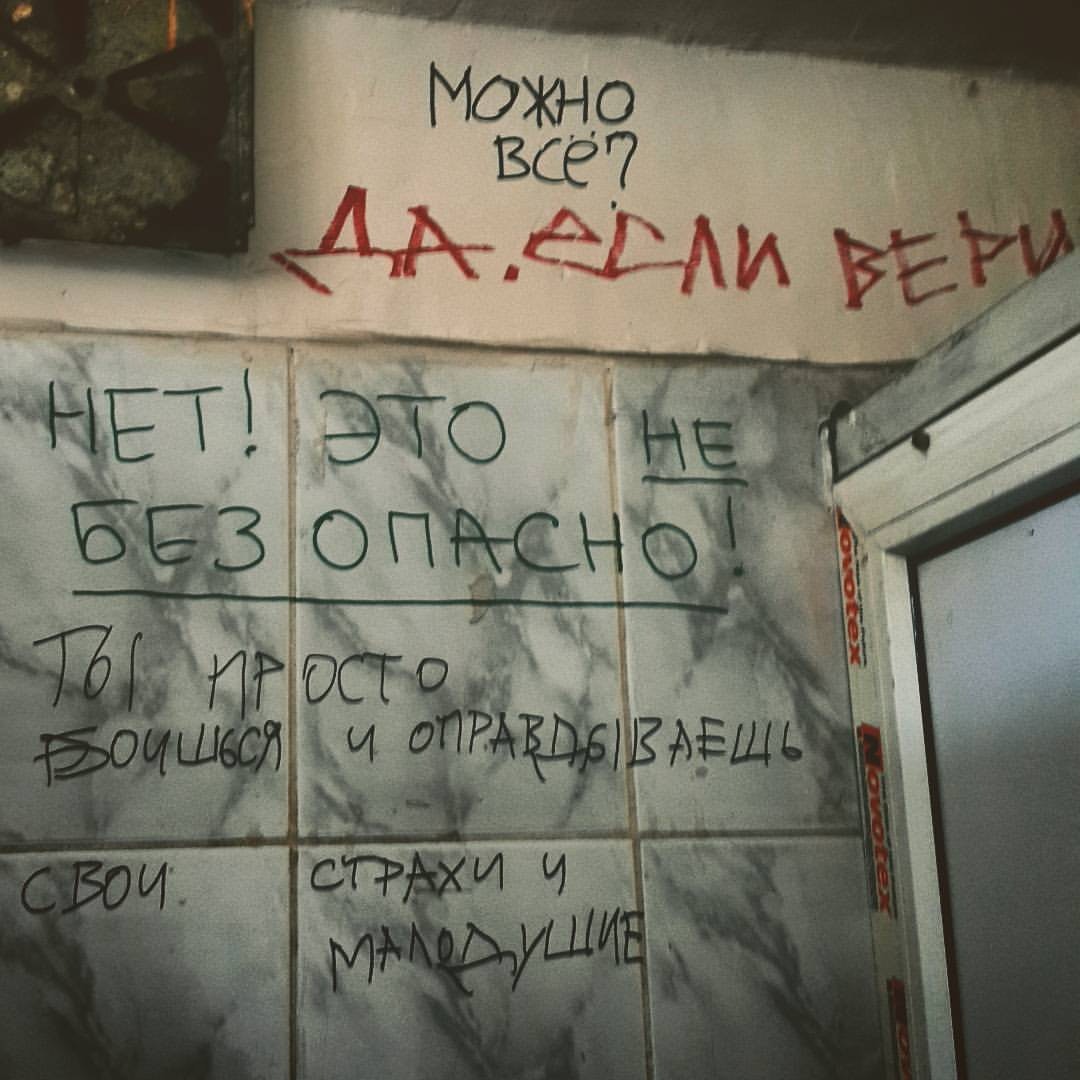 МОЖНО
ВСЁ?
ДА. ЕСЛИ ВЕРИ
НЕТ! ЭТО НЕ
БЕЗОПАСНО!
ТЫ ПРОСТО
БОИШЬСЯ И ОПРАВДЫВАЕШЬ
СВОИ СТРАХИ И
МАЛОДУШИЕ
ovotex
Novotex